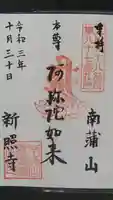 奉拝
南蒲山
本尊
阿弥陀如来
令和三年
十月三十日
新照寺